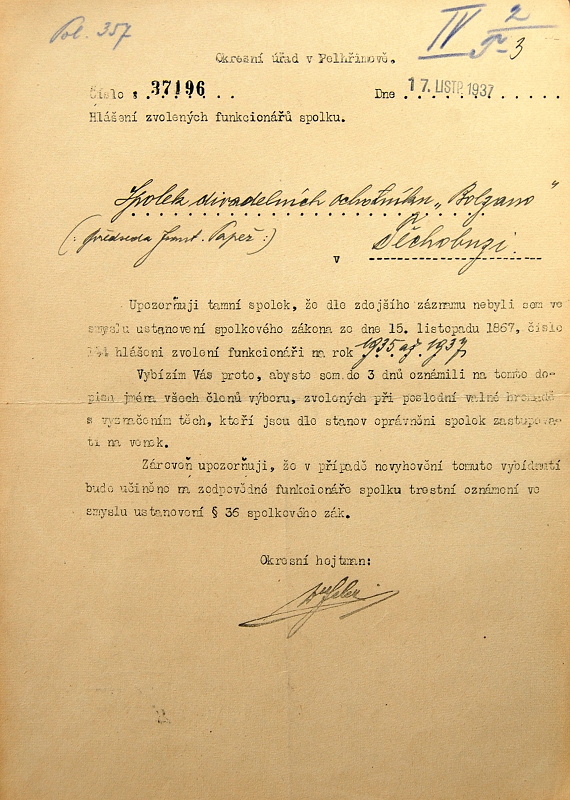 Pol. 357
IV 2
3
Okresní úřad v Pelhřimově.
Číslo : 37196
Dne 17. LISTP. 1937
Hlášení zvolených funkcionářů spolku.
Spolek divadelních ochotníku „Bolzano"
(: předseda Frant. Papež :)
v Těchobuzi.
Upozorňuji tamní spolek, že dle zdejšího záznamu nebyli sem ve
smyslu ustanovení spolkového zákona ze dne 15. listopadu 1867, číslo
144 hlášeni zvolení funkcionáři na rok 1935 až 1937
Vybízím Vás proto, abyste sem do 3 dnů oznámili na tomto do-
pisu jména všech členů výboru, zvolených při poslední valné hromadě
s vyznačením těch, kteří jsou dle stanov oprávněni spolek zastupova-
ti na venek.
Zároveň upozorňuji, že v případě nevyhovění tomuto vybídnutí
bude učiněno na zodpovědné funkcionáře spolku trestní oznámení ve
smyslu ustanovení § 36 spolkového zák.
Okresní hejtman: